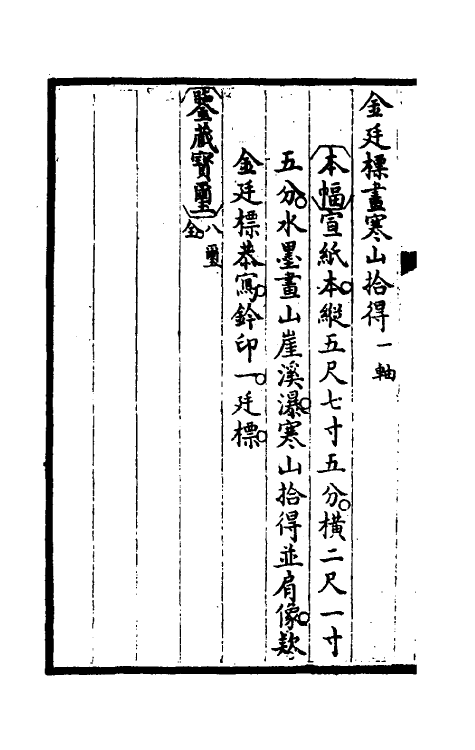 金廷標畫寒山拾得一軸
本幅宣紙本縱五尺七寸五分橫二尺一寸
五分水墨畫山崖溪瀑寒山拾得並肩像款
金廷標恭寫鈐印一廷標
鑒藏寶璽八璽全